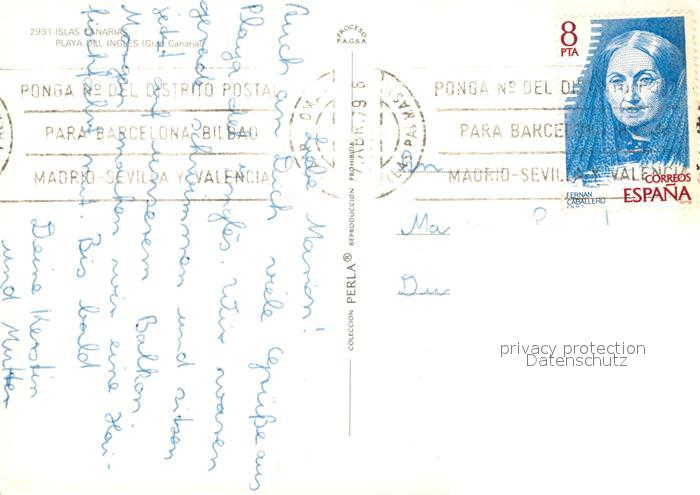 2931-ISLAS CANARIAS
PLAYA DEL INGLES (Gran Canaria)
PROCESO
P.A.G.S.A
8
PTA
CORREOS
ESPAÑA
FERNAN
CABALLERO
F.N.M.T.
PONGA Nº DEL DISTRITO POSTAL
PARA BARCELONA-BILBAO
MADRID-SEVILLA Y VALENCIA
ABR. 79
LAS PALMAS
PONGA Nº DEL DISTRITO POSTAL
PARA BARCELONA-BILBAO
MADRID-SEVILLA Y VALENCIA
COLECCION PERLA® REPRODUCCION PROHIBIDA
Liebe Marion!
Auch an Dich viele Grüße aus
Playa del inglés. Wir waren
gerade schwimmen und sitzen
jetzt auf unserem Balkon.
Morgen machen wir eine Hai-
fischfahrt mit. Bis bald
Deine Kerstin
und Mutter
Ma
Du
privacy protection
Datenschutz